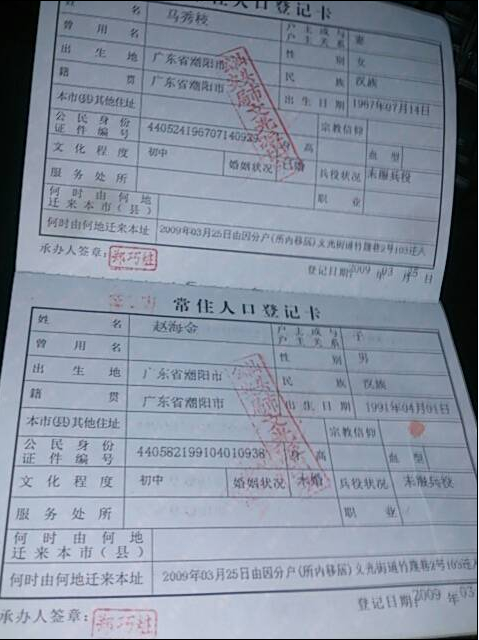 常住人口登记卡
姓 名 马秀枝 户主或与户主关系 妻
曾用名 性别 女
出生地 广东省潮阳市 民族 汉族
籍贯 广东省潮阳市 出生日期
本市(县)其他住址 宗教信仰
公民身份证件编号 身高 血型
文化程度 初中 婚姻状况 已婚 兵役状况 未服兵役
服务处所 职业
何时由何地迁来本市(县)
何时由何地迁来本址 2009年03月25日由因分户(所内移居)文光街道竹陇巷2号103迁入
承办人签章: 郑巧娃 登记日期:2009年03月25日
常住人口登记卡
姓 名 赵海金 户主或与户主关系 子
曾用名 性别 男
出生地 广东省潮阳市 民族 汉族
籍贯 广东省潮阳市 出生日期 1991年04月01日
本市(县)其他住址 宗教信仰
公民身份证件编号 440582199104010938 身高 血型
文化程度 初中 婚姻状况 未婚 兵役状况 未服兵役
服务处所 职业
何时由何地迁来本市(县)
何时由何地迁来本址 2009年03月25日由因分户(所内移居)文光街道竹陇巷2号103迁入
承办人签章: 郑巧娃 登记日期:2009年03